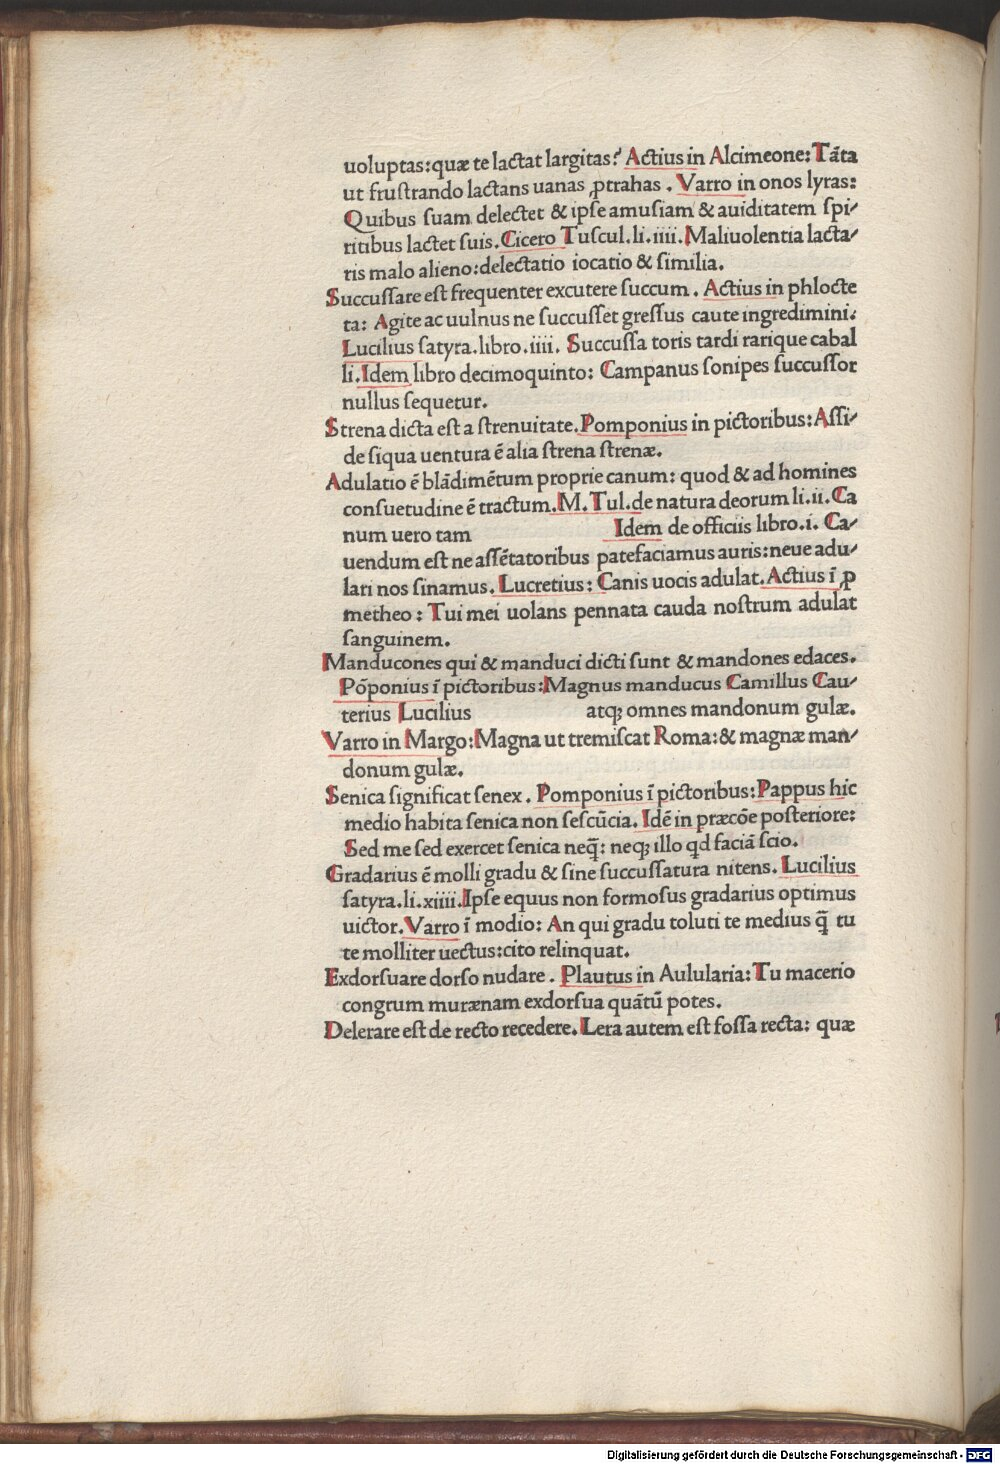 uoluptas:quæ te lactat largitas? Actius in Alcimeone: Tāta
ut frustrando lactans uanas ꝓtrahas . Varro in onos lyras:
Quibus suam delectet & ipse amusiam & auiditatem spi/
ritibus lactet suis. Cicero Tuscul.li.iiii. Maliuolentia lacta/
ris malo alieno:delectatio iocatio & similia.
Succussare est frequenter excutere succum . Actius in phlocte
ta: Agite ac uulnus ne succusset gressus caute ingredimini.
Lucilius satyra.libro.iiii. Succussa toris tardi rarique cabal
li. Idem libro decimoquinto: Campanus sonipes succussor
nullus sequetur.
Strena dicta est a strenuitate. Pomponius in pictoribus: Assi/
de siqua uentura ē alia strena strenæ.
Adulatio ē blādimētum proprie canum: quod & ad homines
consuetudine ē tractum. M. Tul.de natura deorum li.ii. Ca
num uero tam Idem de officiis libro.i. Ca/
uendum est ne assētatoribus patefaciamus auris:neue adu/
lari nos sinamus. Lucretius: Canis uocis adulat. Actius ī ꝓ
metheo : Tui mei uolans pennata cauda nostrum adulat
sanguinem.
Manducones qui & manduci dicti sunt & mandones edaces.
Pōponius ī pictoribus: Magnus manducus Camillus Cau/
terius Lucilius atqꝫ omnes mandonum gulæ.
Varro in Margo: Magna ut tremiscat Roma:& magnæ man/
donum gulæ.
Senica significat senex . Pomponius ī pictoribus: Pappus hic
medio habita senica non sescūcia. Idē in præcōe posteriore:
Sed me sed exercet senica neq̄: neqꝫ illo qd faciā scio.
Gradarius ē molli gradu & sine succussatura nitens. Lucilius
satyra.li.xiiii. Ipse equus non formosus gradarius optimus
uictor. Varro ī modio: An qui gradu toluti te medius q̄ tu
te molliter uectus:cito relinquat.
Exdorsuare dorso nudare . Plautus in Aulularia: Tu macerio
congrum murænam exdorsua quātū potes.
Delerare est de recto recedere. Lera autem est fossa recta: quæ
Digitalisierung gefördert durch die Deutsche Forschungsgemeinschaft - DFG